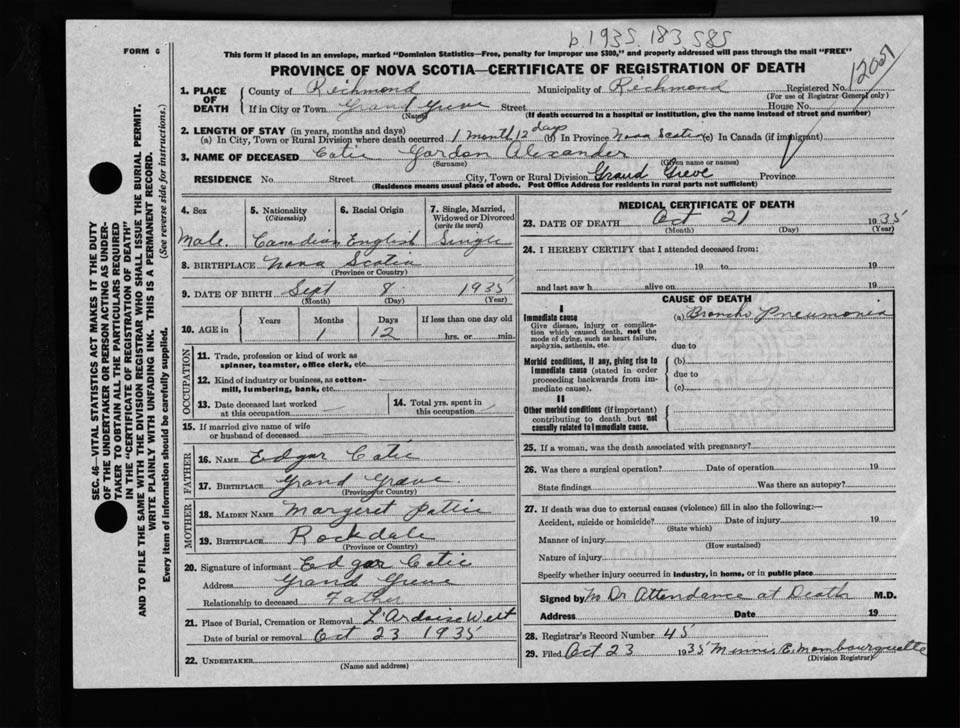 b 1935. 183 585
FORM 6
This form if placed in an envelope, marked "Dominion Statistics—Free, penalty for improper use $300," and properly addressed will pass through the mail "FREE"
PROVINCE OF NOVA SCOTIA—CERTIFICATE OF REGISTRATION OF DEATH
1. PLACE OF DEATH
County of Richmond Municipality of Richmond Registered No.
(For use of Registrar General only)
If in City or Town Grand Greve Street House No.
(Name) (If death occurred in a hospital or institution, give the name instead of street and number)
2. LENGTH OF STAY (in years, months and days)
(a) In City, Town or Rural Division where death occurred 1 month 12 days (b) In Province Nova Scotia (c) In Canada (if immigrant)
3. NAME OF DECEASED Catie Gordon Alexander
(Surname) (Given name or names)
RESIDENCE No. Street City, Town or Rural Division Grand Greve Province
(Residence means usual place of abode. Post Office Address for residents in rural parts not sufficient)
SEC. 46—VITAL STATISTICS ACT MAKES IT THE DUTY
OF THE UNDERTAKER OR PERSON ACTING AS UNDER-
TAKER TO OBTAIN ALL THE PARTICULARS REQUIRED
IN THE "CERTIFICATE OF REGISTRATION OF DEATH"
AND TO FILE THE SAME WITH THE DIVISION REGISTRAR WHO SHALL ISSUE THE BURIAL PERMIT.
WRITE PLAINLY WITH UNFADING INK. THIS IS A PERMANENT RECORD.
Every item of information should be carefully supplied. (See reverse side for instructions.)
4. Sex 5. Nationality (Citizenship) 6. Racial Origin 7. Single, Married, Widowed or Divorced (write the word)
Male. Canadian English Single
8. BIRTHPLACE Nova Scotia
(Province or Country)
9. DATE OF BIRTH Sept 8 1935
(Month) (Day) (Year)
10. AGE in Years Months Days If less than one day old
1 12 hrs. or min.
OCCUPATION
11. Trade, profession or kind of work as
spinner, teamster, office clerk, etc.
12. Kind of industry or business, as cotton-
mill, lumbering, bank, etc.
13. Date deceased last worked
at this occupation
14. Total yrs. spent in
this occupation
15. If married give name of wife
or husband of deceased
FATHER
16. NAME Edgar Catie
17. BIRTHPLACE Grand Grave.
(Province or Country)
MOTHER
18. MAIDEN NAME Margeret Pattie
19. BIRTHPLACE Rockdale
(Province or Country)
20. Signature of informant Edgar Catie
Address Grand Greve
Relationship to deceased Father
21. Place of Burial, Cremation or Removal L'Ardoise West
Date of burial or removal Oct 23 1935
22. UNDERTAKER
(Name and address)
MEDICAL CERTIFICATE OF DEATH
23. DATE OF DEATH Oct 21 1935
(Month) (Day) (Year)
24. I HEREBY CERTIFY that I attended deceased from:
19 to 19
and last saw h alive on 19
CAUSE OF DEATH
I
Immediate cause (a) Broncho Pneumonia
Give disease, injury or complica-
tion which caused death, not the
mode of dying, such as heart failure,
asphyxia, asthenia, etc.
due to
Morbid conditions, if any, giving rise to (b)
immediate cause (stated in order
proceeding backwards from im-
mediate cause).
due to
(c)
II
Other morbid conditions (if important)
contributing to death but not
causally related to immediate cause.
25. If a woman, was the death associated with pregnancy?
26. Was there a surgical operation? Date of operation 19
State findings Was there an autopsy?
27. If death was due to external causes (violence) fill in also the following:—
Accident, suicide or homicide? Date of injury 19
(State which)
Manner of injury
(How sustained)
Nature of injury
Specify whether injury occurred in industry, in home, or in public place
Signed by No Dr Attendance at Death M.D.
Address Date 19
28. Registrar's Record Number 45
29. Filed Oct 23 1935 Minnie E. Mombourquette
(Division Registrar)